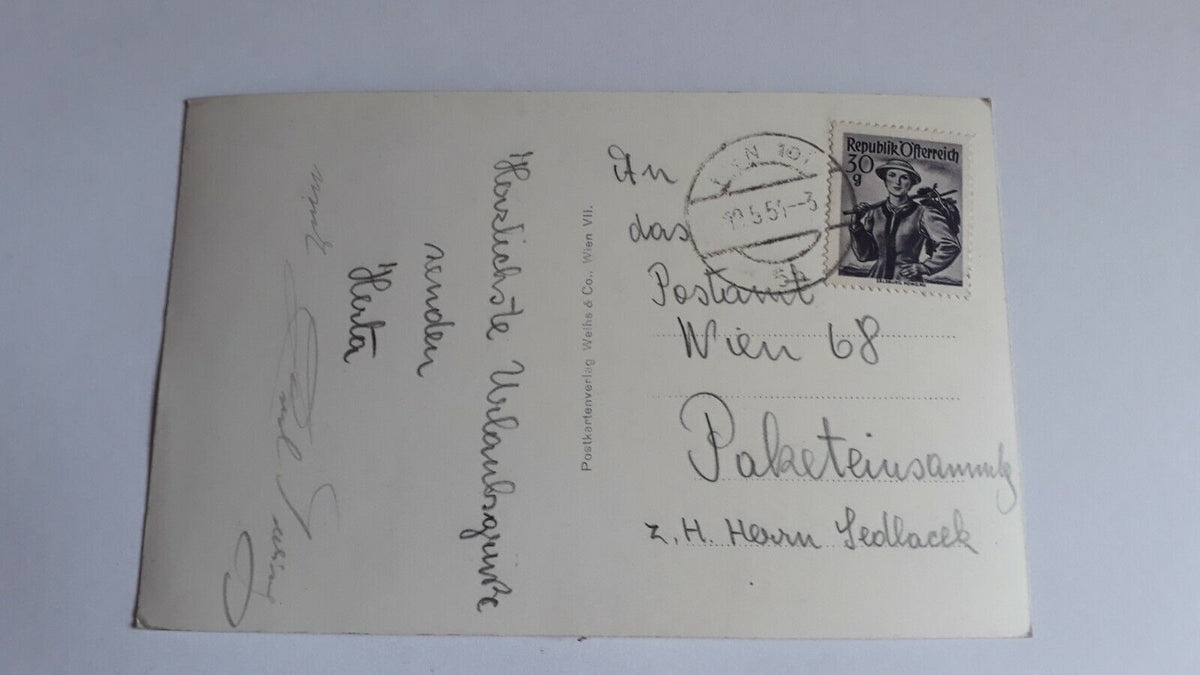 Herzlichste Urlaubsgrüße
senden
Herta
Postkartenverlag Weihs & Co., Wien VII.
An
das
Postamt
Wien 68
Paketeinsammlg
z. H. Herrn Sedlacek
Republik Österreich
30
g